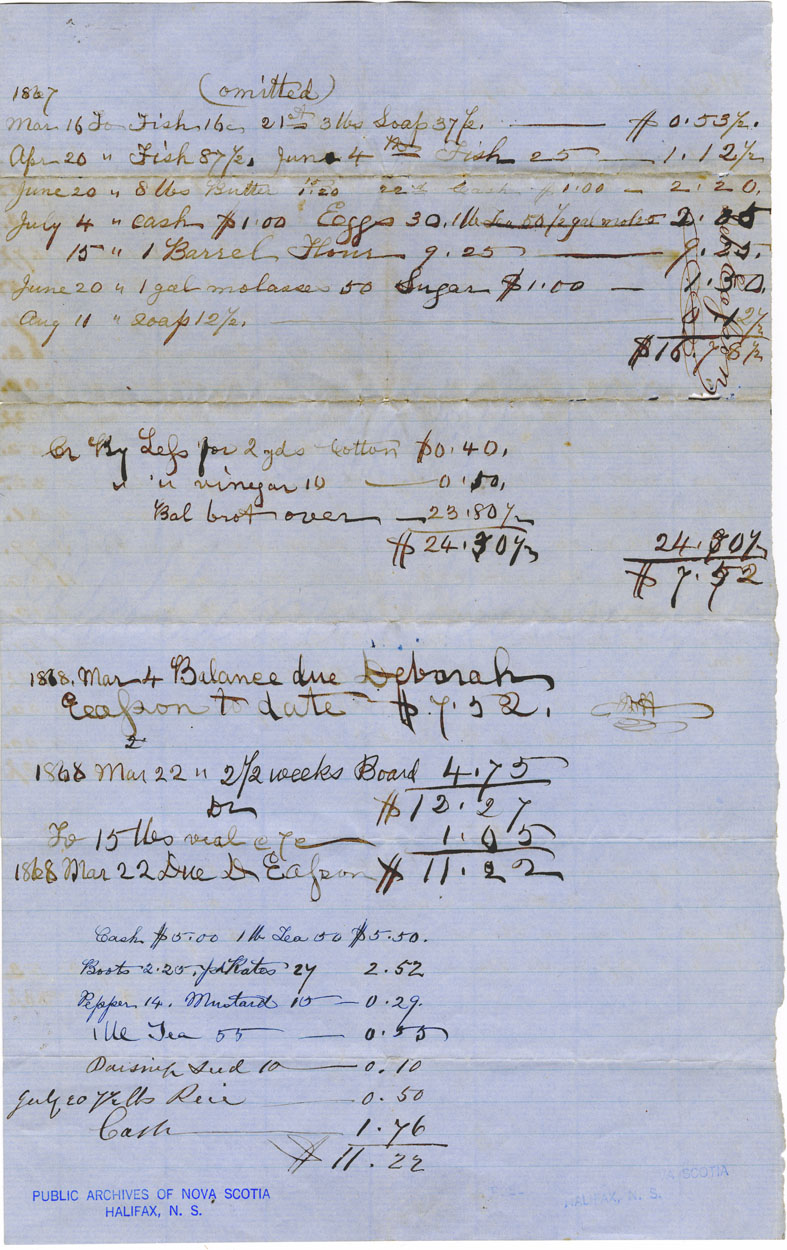 1867 (omitted)
Mar 16 To Fish 16c 21st 3 lbs Soap 37½. — $ 0.53½.
Apr 20 " Fish 87½, June 4th Fish 25 — 1.12½
June 20 " 8 lbs Butter 1.20 22d Cash $1.00 — 2.20.
July 4 " cash $1.00 Eggs 30, 1 lb Tea 50 ½ gal molas 2.05
15 " 1 Barrel Flour 9.25 — 9.25.
June 20 " 1 gal molasses 50 Sugar $1.00 — 1.50.
Aug 11 " soap 12½. — 0.12½
$16.78½
Cr By Less for 2 yds Cotton $0.40,
" " vinegar 10 — 0.10,
Bal brot over — 23.80½
$24.30½ 24.30½
$ 7.52
1868. Mar 4 Balance due Deborah
Eason to date $.7.52.
2
1868 Mar 22 " 2½ weeks Board 4.75
Dr $12.27
To 15 lbs veal @ 7c — 1.05
1868 Mar 22 Due D Eason $ 11.22
Cash $5.00 1 lb Tea 50 $5.50.
Boots 2.25, Skates 27 2.52
Pepper 14. Mustard 15 — 0.29.
1 lb Tea 55 — 0.55
Parsnip Seed 10 — 0.10
July 20 7½ lbs Rice — 0.50
Cash — 1.76
$ 11.22
PUBLIC ARCHIVES OF NOVA SCOTIA
HALIFAX, N. S.
NOVA SCOTIA
HALIFAX, N. S.